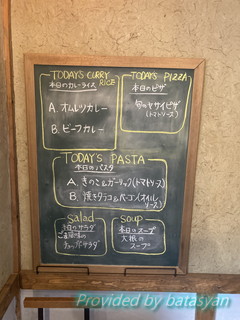 TODAY'S CURRY RICE
本日のカレーライス
A. オムレツカレー
B. ビーフカレー
TODAY'S PIZZA
本日のピザ
旬のヤサイピザ
(トマトソース)
TODAY'S PASTA
本日のパスタ
A. きのこ&ガーリック(トマトソース)
B. 焼きタラコ&ベーコン(オイルソース)
Salad
本日のサラダ
チョップドサラダ
Soup
本日のスープ
大根の
スープ
Provided by batasyan